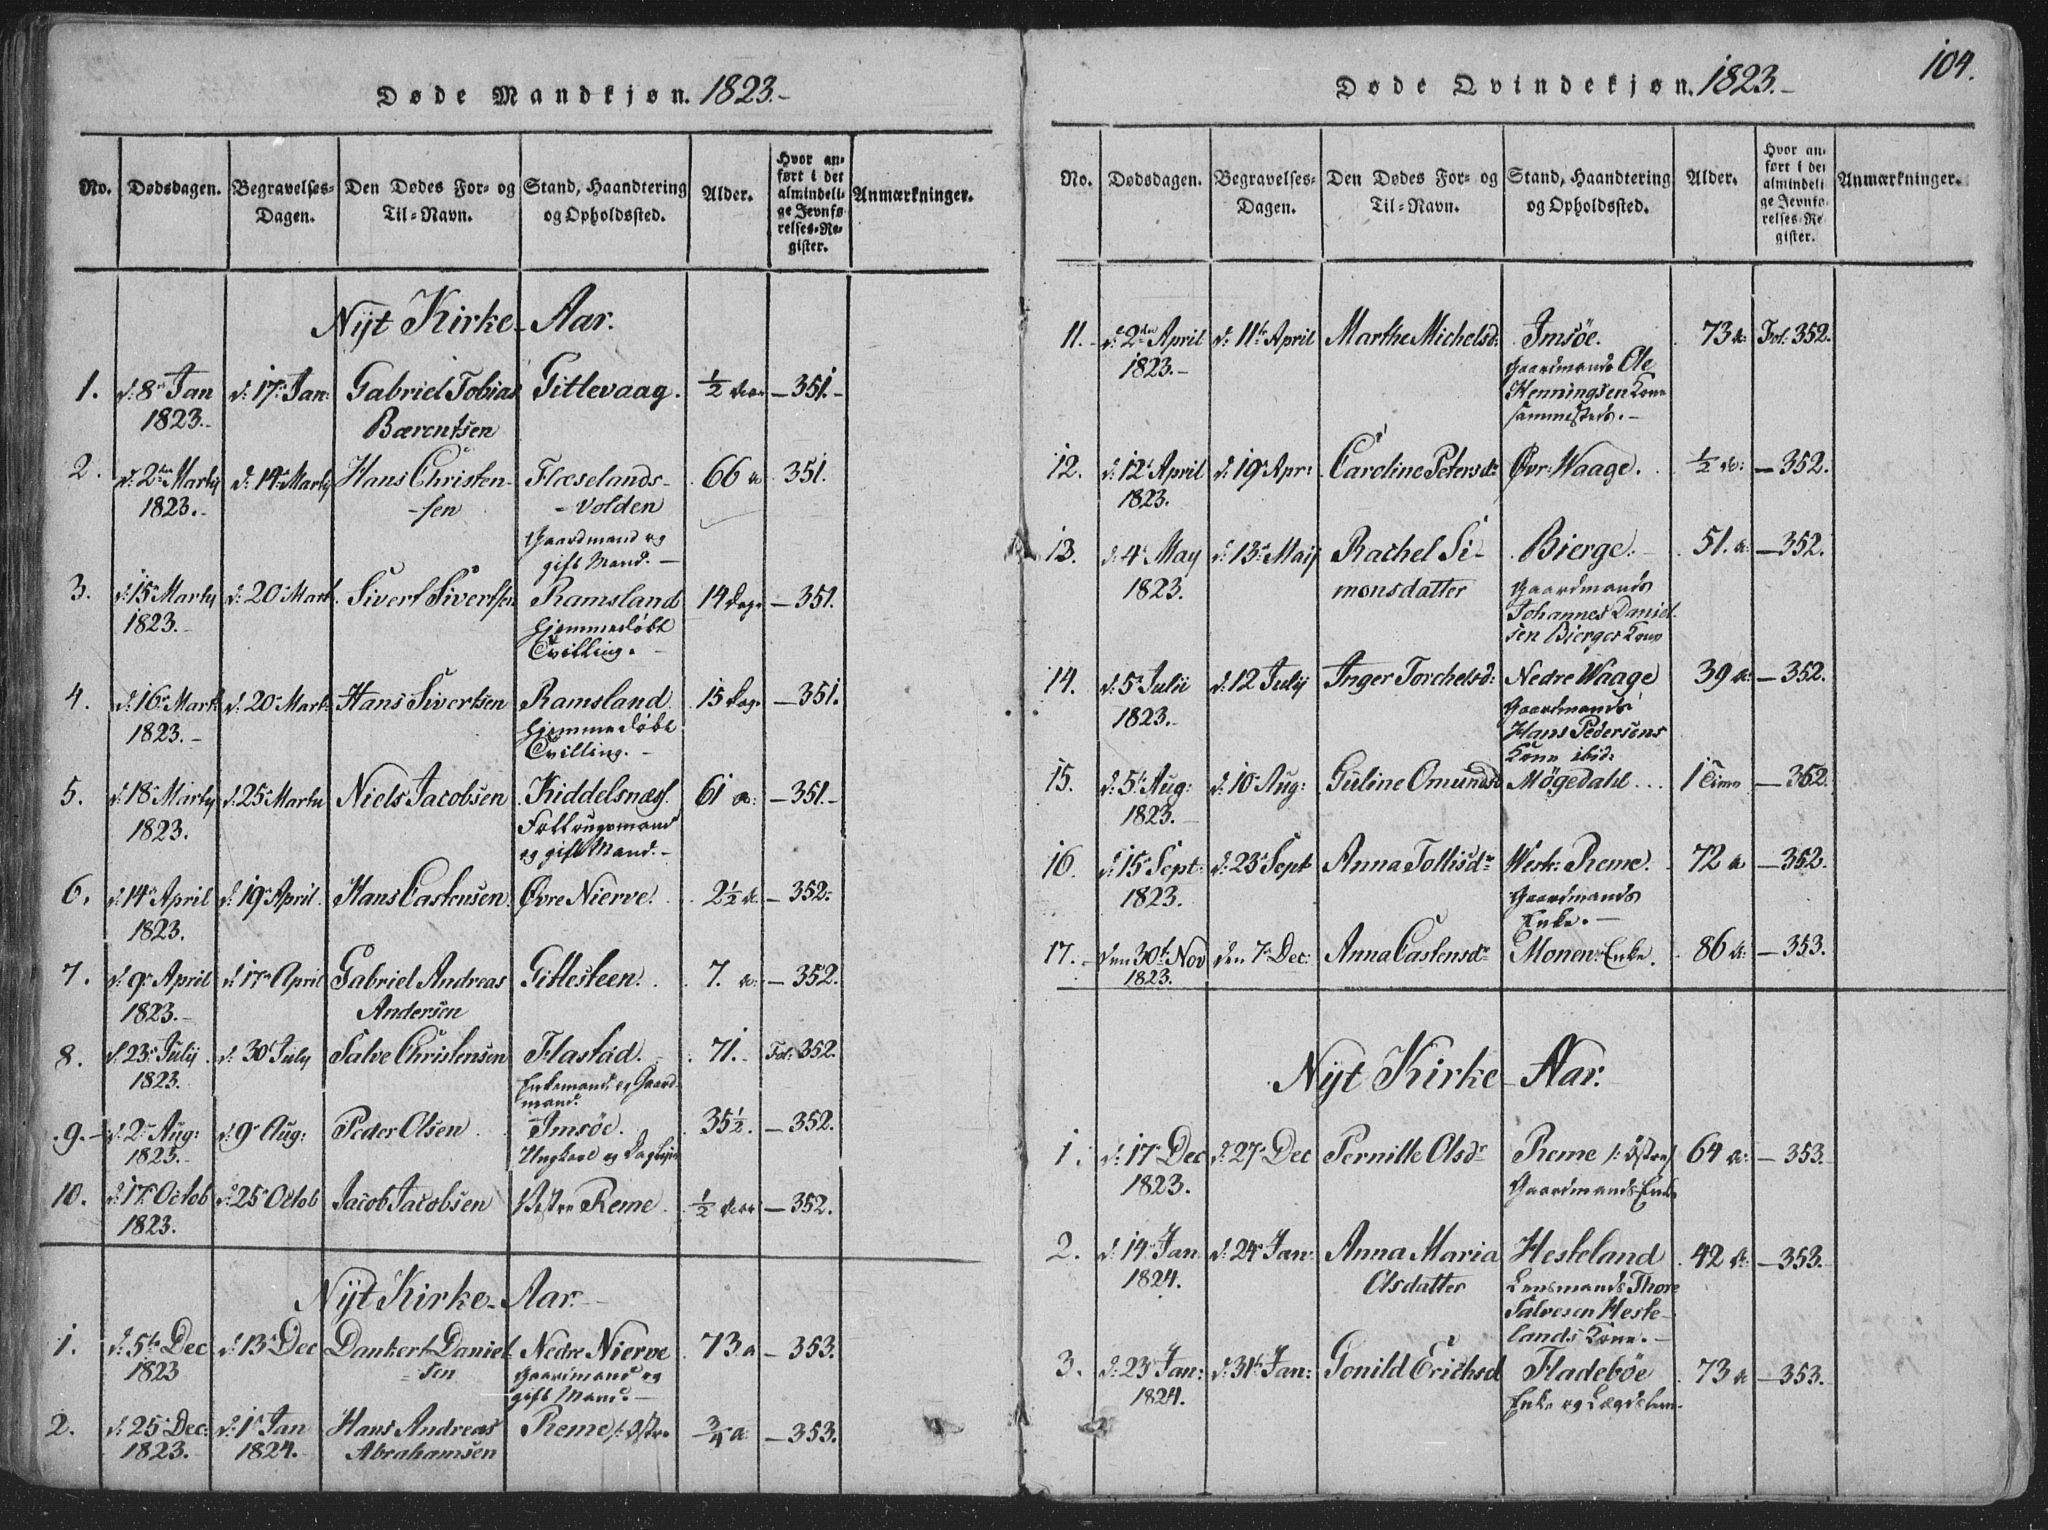 Døde Mandkjøn. 1823.-
No. Dødsdagen. Begravelses-Dagen. Den Dødes For- og Til-Navn. Stand, Haandtering og Opholdssted. Alder. Hvor anført i det almindelige Jevnførelses-Register. Anmærkninger.
Nyt Kirke-Aar.
1. d: 8de Jan 1823.- d: 17de Jan: Gabriel Tobias Bærentsen Gitlevaag. ½ Aar - 351.-
2. d: 2den Marty 1823.- d: 14de Marty Hans Christen-sen Flæselands-volden Gaardmand og gift Mand.- 66 a 351.
3. d: 15de Marty 1823.- d: 20de Mart. Sivert Sivertsen Ramsland Hjemmedøbt Tvilling.- 14 Dage - 351.
4. d: 16de Mart. 1823.- d: 20de Mart. Hans Sivertsen Ramsland. Hjemmedøbt Tvilling.- 15 Dage - 351.
5. d: 18de Marty 1823. d: 25de Marty Niels Jacobsen Kiddelsnæs. og gift Mand.- 61 a: - 351.-
6. d: 14de April 1823. d: 19de April. Hans Castensen Øvre Nierve. 2½ a: - 352.
7. d: 9de April 1823.- d: 17de April Gabriel Andreas Andersen Gitlesteen. 7. a: - 352.
8. d: 23de July 1823. d: 30te July Salve Christensen Flastad. Enkemand og Gaardmand. 71.- Fol: 352.
9.- d: 2den Aug: 1823.- d: 9de Aug: Peder Olsen Imsøe. Ungkarl og 35½. - 352.
10. d: 17de Octob 1823. d: 25de Octob Jacob Jacobsen Vestre Reme. ½ Aar - 352.
Nyt Kirke-Aar.-
1. d: 5te Dec 1823 d: 13de Dec Dankert Daniel-sen Nedre Nierve Gaardmand og gift Mand.- 73 a - 353.
2. d: 25de Dec: 1823. d: 1ste Jan 1824. Hans Andreas Abrahamsen Reme /: Østre ¾ a: - 353.
104.
Døde Qvindekjøn. 1823.-
No. Dødsdagen. Begravelses-Dagen. Den Dødes For- og Til-Navn. Stand, Haandtering og Opholdssted. Alder. Hvor anført i det almindelige Jevnførelses-Register. Anmærkninger.
11. d: 2den April 1823.- d: 11te April Marthe Michelsd: Imsøe. Gaardmands Ole Henningsen Kone sammesteds.- 73 a: Fol: 352.
12. d: 12te April 1823. d: 19de Apr: Caroline Petersdr Øvr: Waage. ½ a: - 352.
13. d: 4de May 1823. d: 13de Maij Rachel Simonsdatter Bierge.- Gaardmands Johannes Danielsen Bierges Kone 51. a: - 352.
14. d: 5te Julii 1823.- d: 12 July Inger Torchelsd: Nedre Waage Gaardmands Hans Pedersens Kone ibid: 39 a: - 352.
15. d: 5te Aug: 1823. d: 10de Aug: Guline Omundsd Møgedahl... 1 Time - 352.
16. d: 15de Sept: 1823. d: 23de Sept Anna Tollisdr Westr: Reme. Gaardmands Enke.- 72 a - 352.
17.- den 30te Nov 1823. den 7de Dec: Anna Castensdr Monen Enke. 86 a: - 353.
Nyt Kirke-Aar.
1. d: 17de Dec 1823. d: 27de Dec Pernille Olsdr Reme /: Østre/ Gaardmands Enke 64 a: - 353.
2. d: 14de Jan 1824. d: 24de Jan: Anna Maria Olsdatter Hesteland Lensmands Thore Salvesen Hestelands Kone.- 42 a: - 353.
3. d: 23de Jan: 1824. d: 31te Jan: Gonild Erichsd Fladebøe Enke og Lægdslem. 73 a - 353.